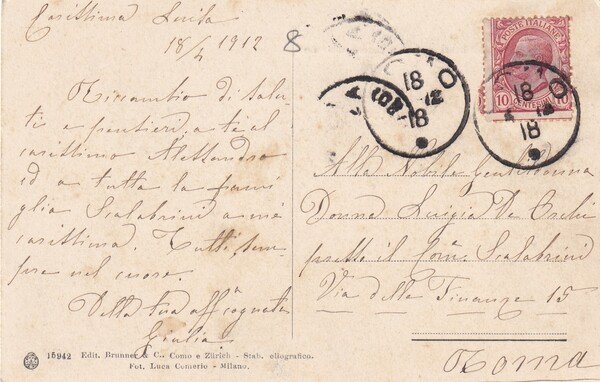 Carissima Luisa
18/4 1912
8
Ricambio di salu-
ti e pensieri, a te al
carissimo Alessandro
ed a tutta la fami
glia Scalabrini a me
carissima. Tutti sem
pre nel cuore.
Della tua aff.ª cognata
Giulia
15942 Edit. Brunner & C., Como e Zürich - Stab. eliografico.
Fot. Luca Comerio - Milano.
POSTE ITALIANE
10 CENTESIMI 10
18
12
18
18
12
18
Alla Nobile Gentildonna
Donna Luigia De Orchi
presso il Com. Scalabrini
Via delle Finanze 15
Roma